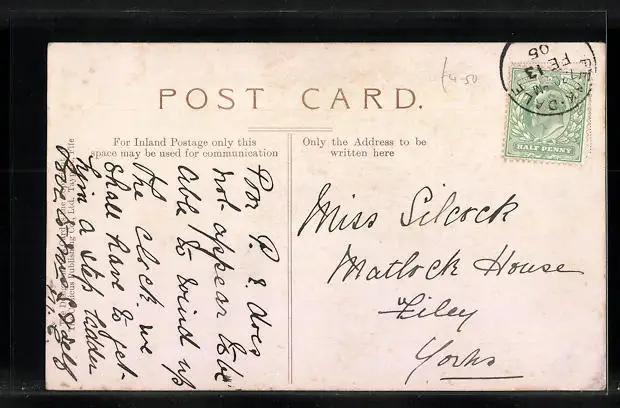 POST CARD.
£4-50
FE 13
05
HALF PENNY
For Inland Postage only this
space may be used for communication
Only the Address to be
written here
Poor P. & does
not appear to be
able to wind up
the clock. we
shall have to get
him a step ladder
Miss Silcock
Matlock House
Filey
Yorks